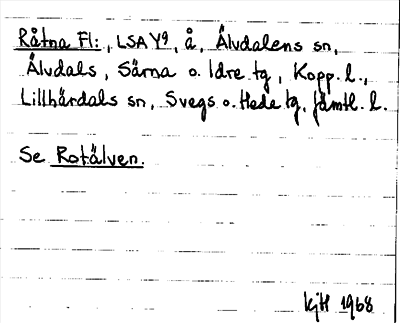 Råtna Fl:, LSA Y9, å, Älvdalens sn,
Älvdals, Särna o. Idre tg, Kopp. l.,
Lillhärdals sn, Svegs o. Hede tg, Jämtl. l.
Se Rotälven.
KjH 1968